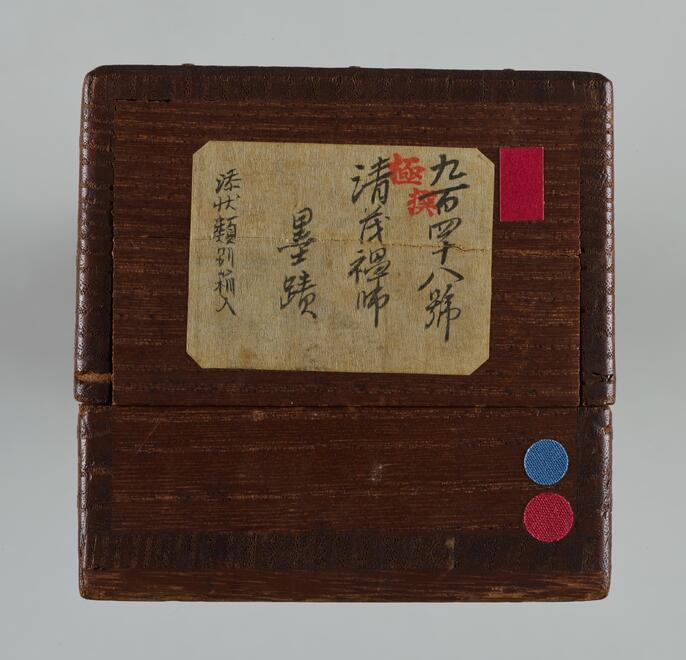 九百四十八號
極撰
清茂禅師
墨蹟
添状類別箱入